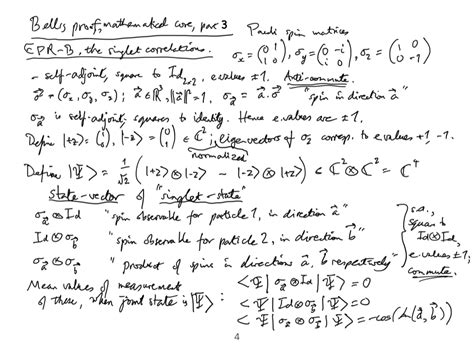 Bell's proof, mathematical core, part 3
Pauli spin matrices
EPR-B, the singlet correlations.
σx = (0 1; 1 0), σy = (0 -i; i 0), σz = (1 0; 0 -1)
- self-adjoint, square to Id2x2, e.values ±1. Anti-commute.
σ⃗ = (σx, σy, σz); a⃗ ∈ ℝ³, ‖a⃗‖² = 1, σa⃗ = a⃗.σ⃗ "spin in direction a⃗"
σa⃗ is self-adjoint, squares to identity. Hence e.values are ±1.
Define |+z⟩ = (1; 0), |-z⟩ = (0; 1) ∈ ℂ²; eigenvectors of σz corresp. to e.values +1, -1.
normalized
Define |Ψ⟩ = 1/√2 (|+z⟩ ⊗ |-z⟩ - |-z⟩ ⊗ |+z⟩) ∈ ℂ² ⊗ ℂ² = ℂ⁴
state-vector of "singlet-state"
σa⃗ ⊗ Id "spin observable for particle 1, in direction a⃗"
Id ⊗ σb⃗ "spin observable for particle 2, in direction b⃗"
σa⃗ ⊗ σb⃗ "product of spins in directions a⃗, b⃗ respectively"
s.a., square to Id⊗Id, e.values ±1; commute.
Mean values of measurement of these, when joint state is |Ψ⟩ :
⟨Ψ| σa⃗ ⊗ Id |Ψ⟩ = 0
⟨Ψ| Id ⊗ σb⃗ |Ψ⟩ = 0
⟨Ψ| σa⃗ ⊗ σb⃗ |Ψ⟩ = -cos(∠(a⃗, b⃗))
4